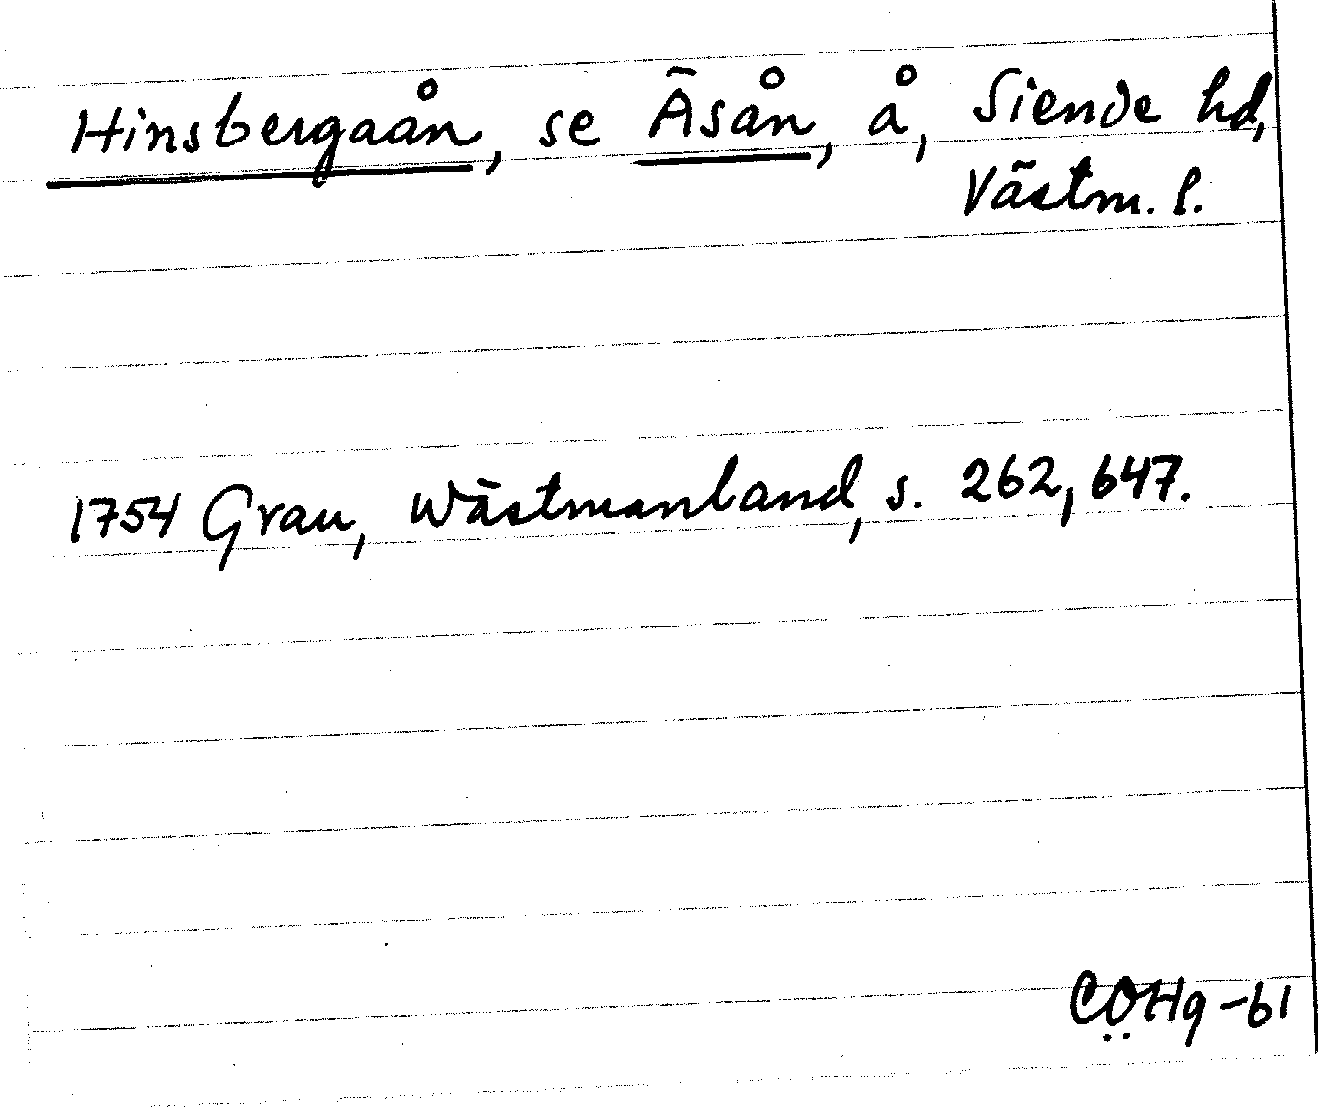 Hinsbergaån, se Äsån, å, Siende hd,
Västm. l.
1754 Grau, Wästmanland, s. 262, 647.
CÖHg -61